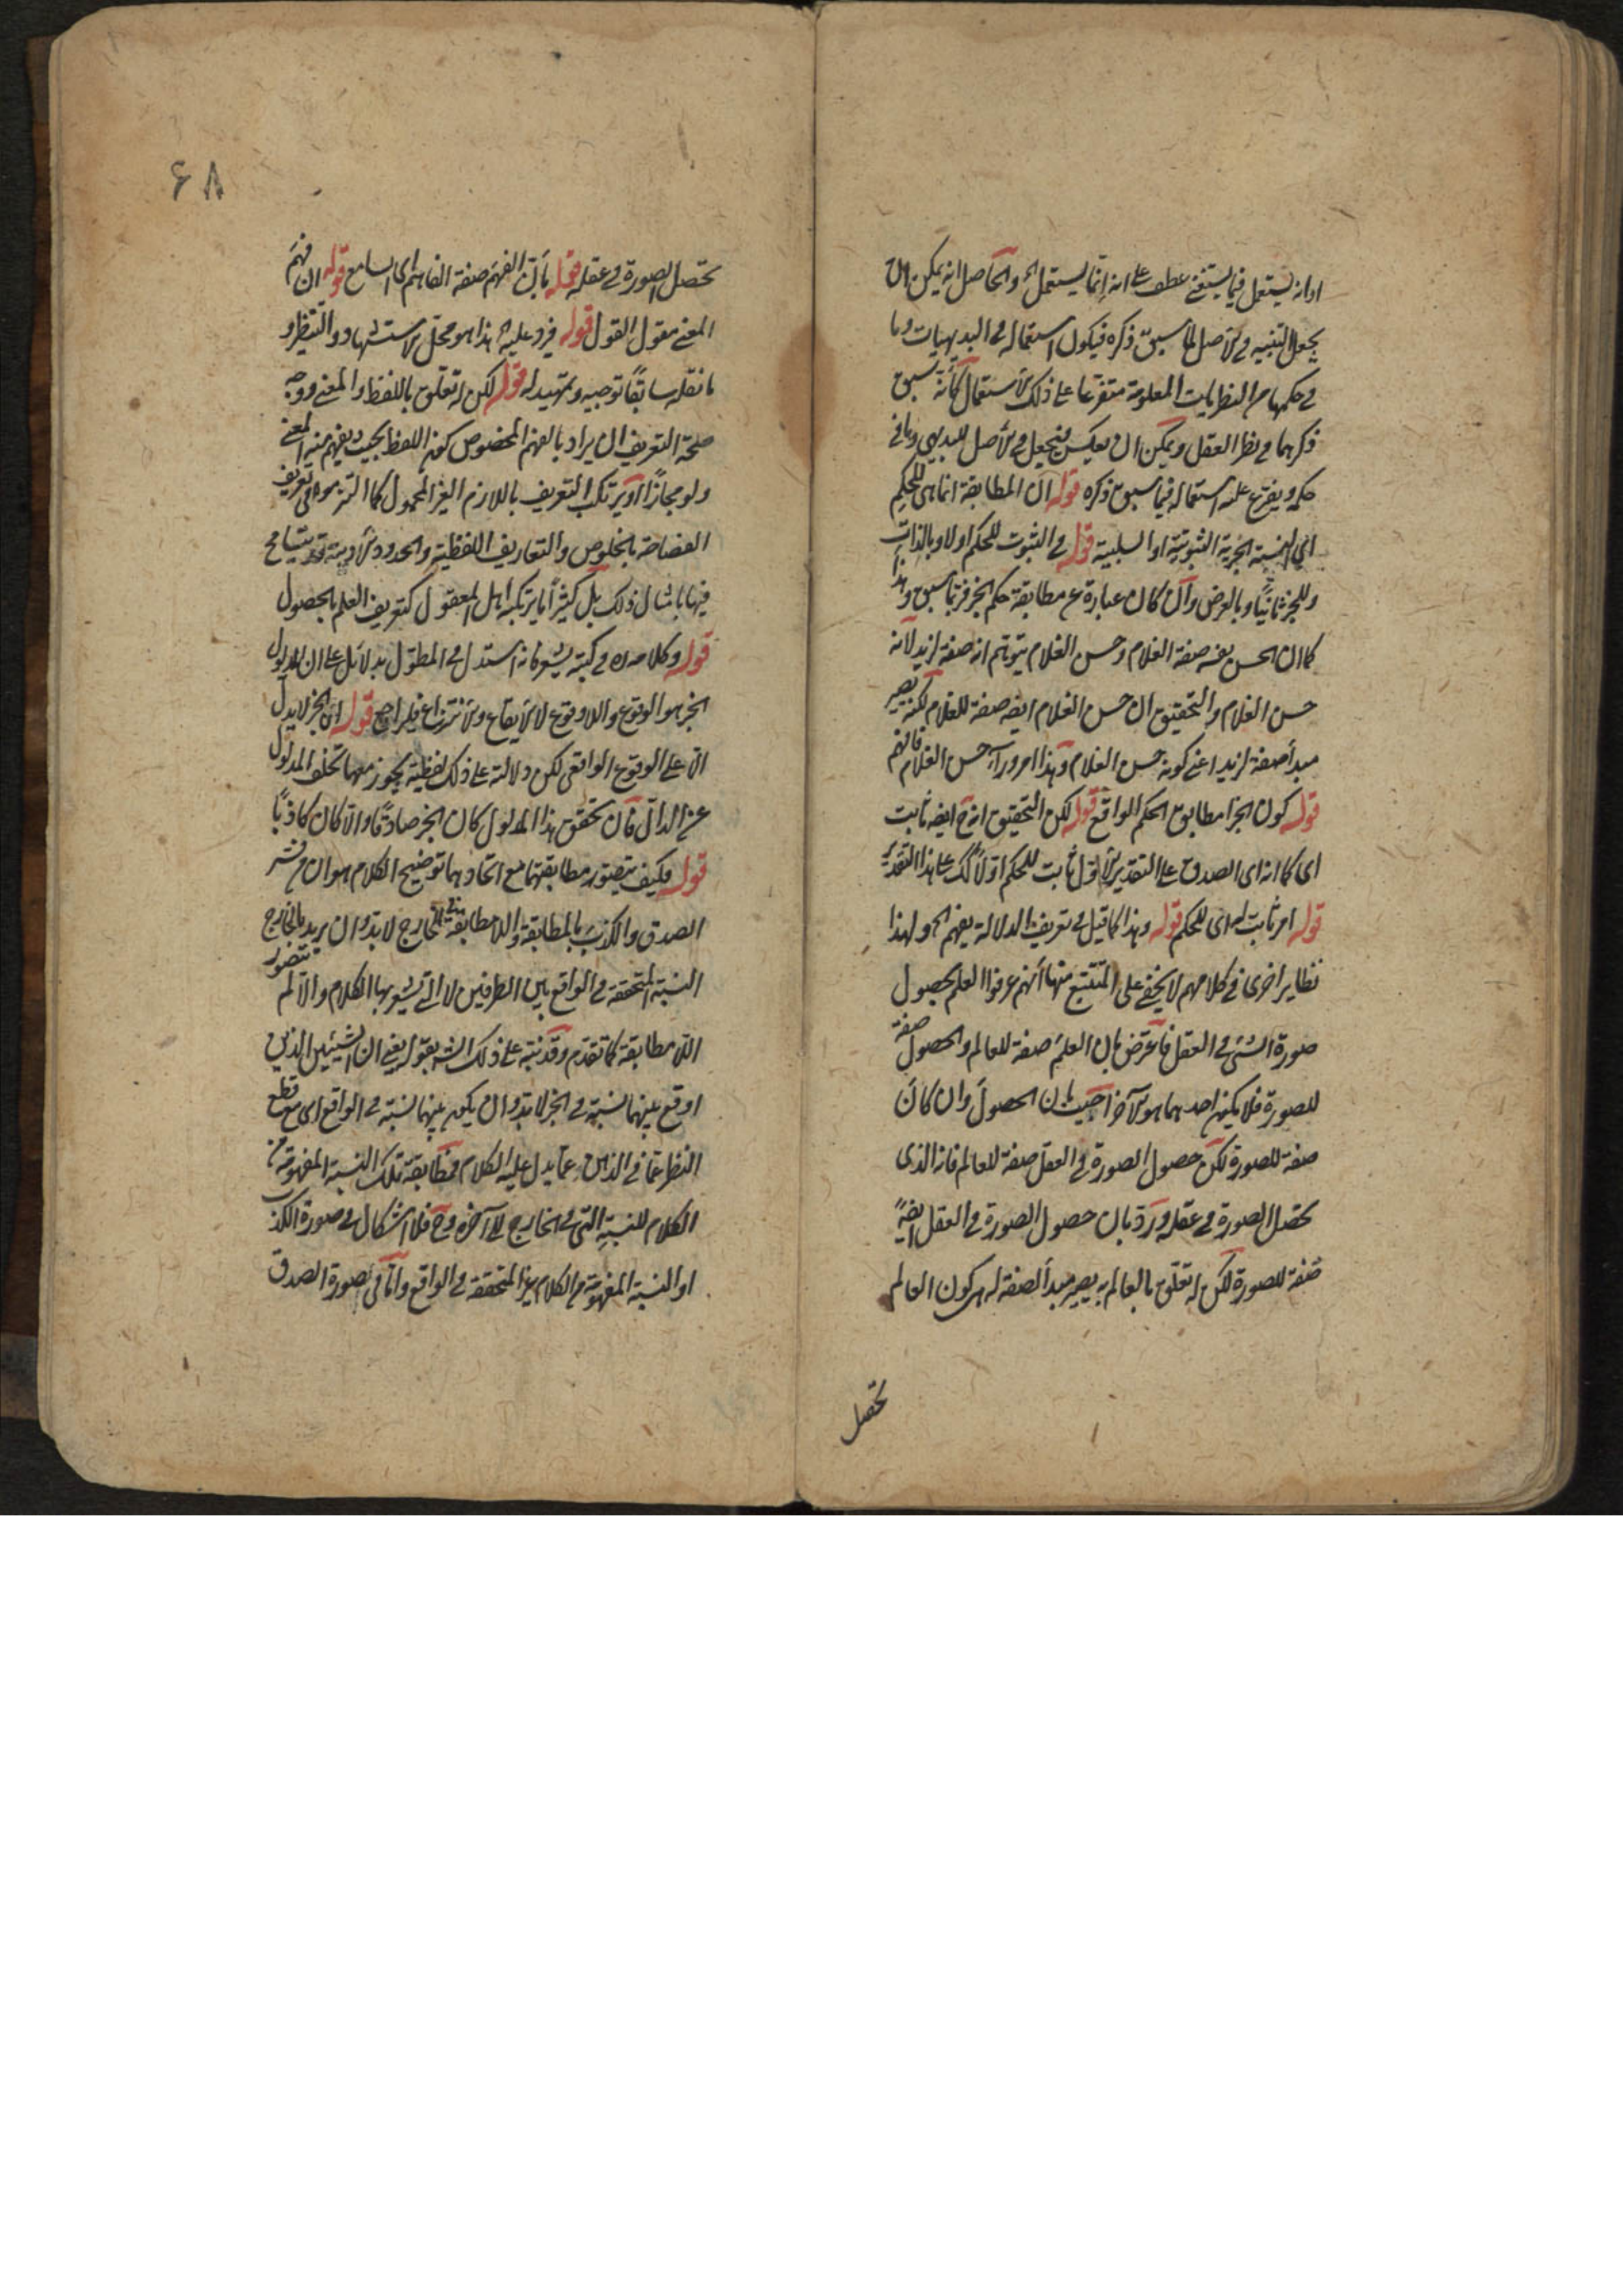 او انه يستعمل فيما يستغنى عطف على انه انما يستعمل الخ والحاصل انه يمكن ان
يجعل التنبيه في الاصل لما سبق ذكره فيكون استعماله في البديهيات وما
في حكمها من النظريات المعلومة متفرعا على ذلك الاستعمال كأنه سبق
ذكرهما في نظر العقل ويمكن ان يعكس فيجعل في الاصل للبديهي وما في
حكمه ويفرع عليه استعماله فيما سبق ذكره قوله ان المطابقة انما هي للحكم
اي النسبة الخبرية الثبوتية او السلبية قوله في الثبوت للحكم اولا وبالذات
وللخبر ثانيا وبالعرض وان كان عبارة عن مطابقة حكم الخبر فربما سبق وهذا
كما ان الحسن نفسه صفة الغلام وحسن الغلام يتوهم انه صفة لزيد لانه
حسن الغلام والتحقيق ان حسن الغلام ايضه صفة للغلام لكنه يصير
مبدأ صفة لزيد اعني كونه حسن الغلام وهذا امر وراء حسن الغلام فافهم
قوله كون الخبر مطابق الحكم الواقع قوله لكن التحقيق انه ح ايضه ثابت
اي كما انه اي الصدق على التقدير الاول ثابت للحكم اولا كك على هذا التقدير
قوله امر ثابت له اي للحكم قوله وهذا كما قيل في تعريف الدلالة بفهم الخ ولهذا
نظاير اخرى في كلامهم لا يخفى على المتتبع منها انهم عرفوا العلم بحصول
صورة الشئ في العقل فاعترض بان العلم صفة للعالم والحصول صفة
للصورة فلا يكون احدهما هو الآخر اجيب بان الحصول وان كان
صفة للصورة لكن حصول الصورة في العقل صفة للعالم فانه الذي
تحصل الصورة في عقله ورد بان حصول الصورة في العقل ايضا
صفة للصورة لكن له تعلق بالعالم به يصير مبدأ لصفة له هي كون العالم
تحصل
٦٨
تحصل الصورة في عقله قوله بأن الفهم صفة الفاهم اي السامع قوله ان فهم
المعنى مقول القول قوله فيرد عليه الخ هذا هو محل الاستشهاد والتنظير و
ما نقله سابقا توجيه وتمهيد له قوله لكن له تعلق باللفظ والمعنى ووجه
صحة التعريف ان يراد بالفهم المخصوص كون اللفظ بحيث يفهم منه المعنى
ولو مجازا او يرتكب التعريف باللازم الغير المحمول كما التزموا في تعريف
الفصاحة بالخلوص والتعاريف اللفظية والحدود الادبية قد يتسامح
فيها بامثال ذلك بل كثيرا ما يرتكبه اهل المعقول كتعريف العلم بالحصول
قوله وكلامه في كتبه يشعر فانه استدل في المطول بدلائل على ان مدلول
الخبر هو الوقوع واللاوقوع لا الايقاع والانتزاع فليراجع قوله ان الخبر لا يدل
الا على الوقوع الواقعي لكن دلالته على ذلك لفظية يجوز معها تخلف المدلول
عن الدال فان تحقق هذا المدلول كان الخبر صادقا والا كان كاذبا
قوله فكيف يتصور مطابقتهما مع اتحادهما توضيح الكلام هو ان من فسر
الصدق والكذب بالمطابقة واللا مطابقة للخارج لا بد وان يريد بالخارج
النسبة المتحققة في الواقع بين الطرفين لا التي يشعر بها الكلام والا لم يتصور
اللا مطابقة كما تقدم وقد نبه على ذلك الشه بقوله يعني ان الشيئين الذين
اوقع بينهما نسبة في الخبر لا بد وان يكون بينهما نسبة في الواقع اي مع قطع
النظر عما في الذهن وعما يدل عليه الكلام فمطابقة تلك النسبة المفهومة من
الكلام للنسبة التي في الخارج الى آخره وح فلا اشكال في صورة الكذب
او النسبة المفهومة من الكلام غير المتحققة في الواقع واما في صورة الصدق